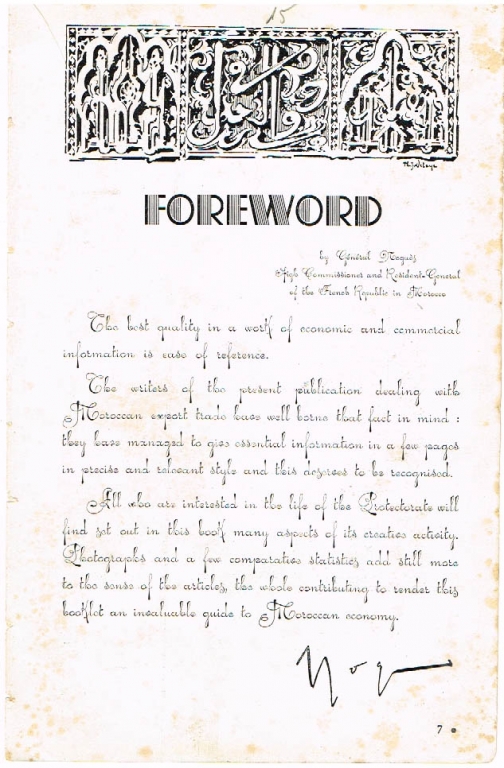 15
FOREWORD
by Général Noguès
High Commissioner and Resident-General
of the French Republic in Morocco
The best quality in a work of economic and commercial
information is ease of reference.
The writers of the present publication dealing with
Moroccan export trade have well borne that fact in mind :
they have managed to give essential information in a few pages
in precise and relevant style and this deserves to be recognised.
All who are interested in the life of the Protectorate will
find set out in this book many aspects of its creative activity.
Photographs and a few comparative statistics add still more
to the sense of the articles, the whole contributing to render this
booklet an invaluable guide to Moroccan economy.
7